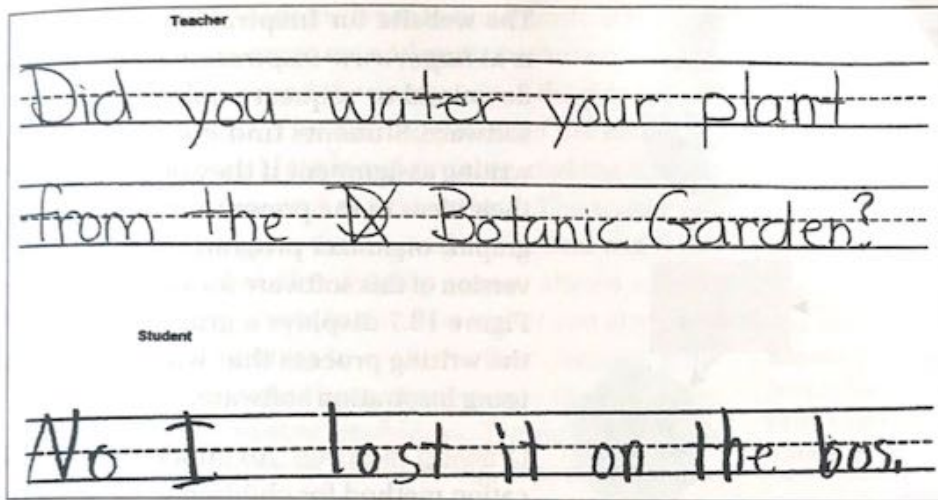 Teacher
Did you water your plant
from the Botanic Garden?
Student
No I lost it on the bus.